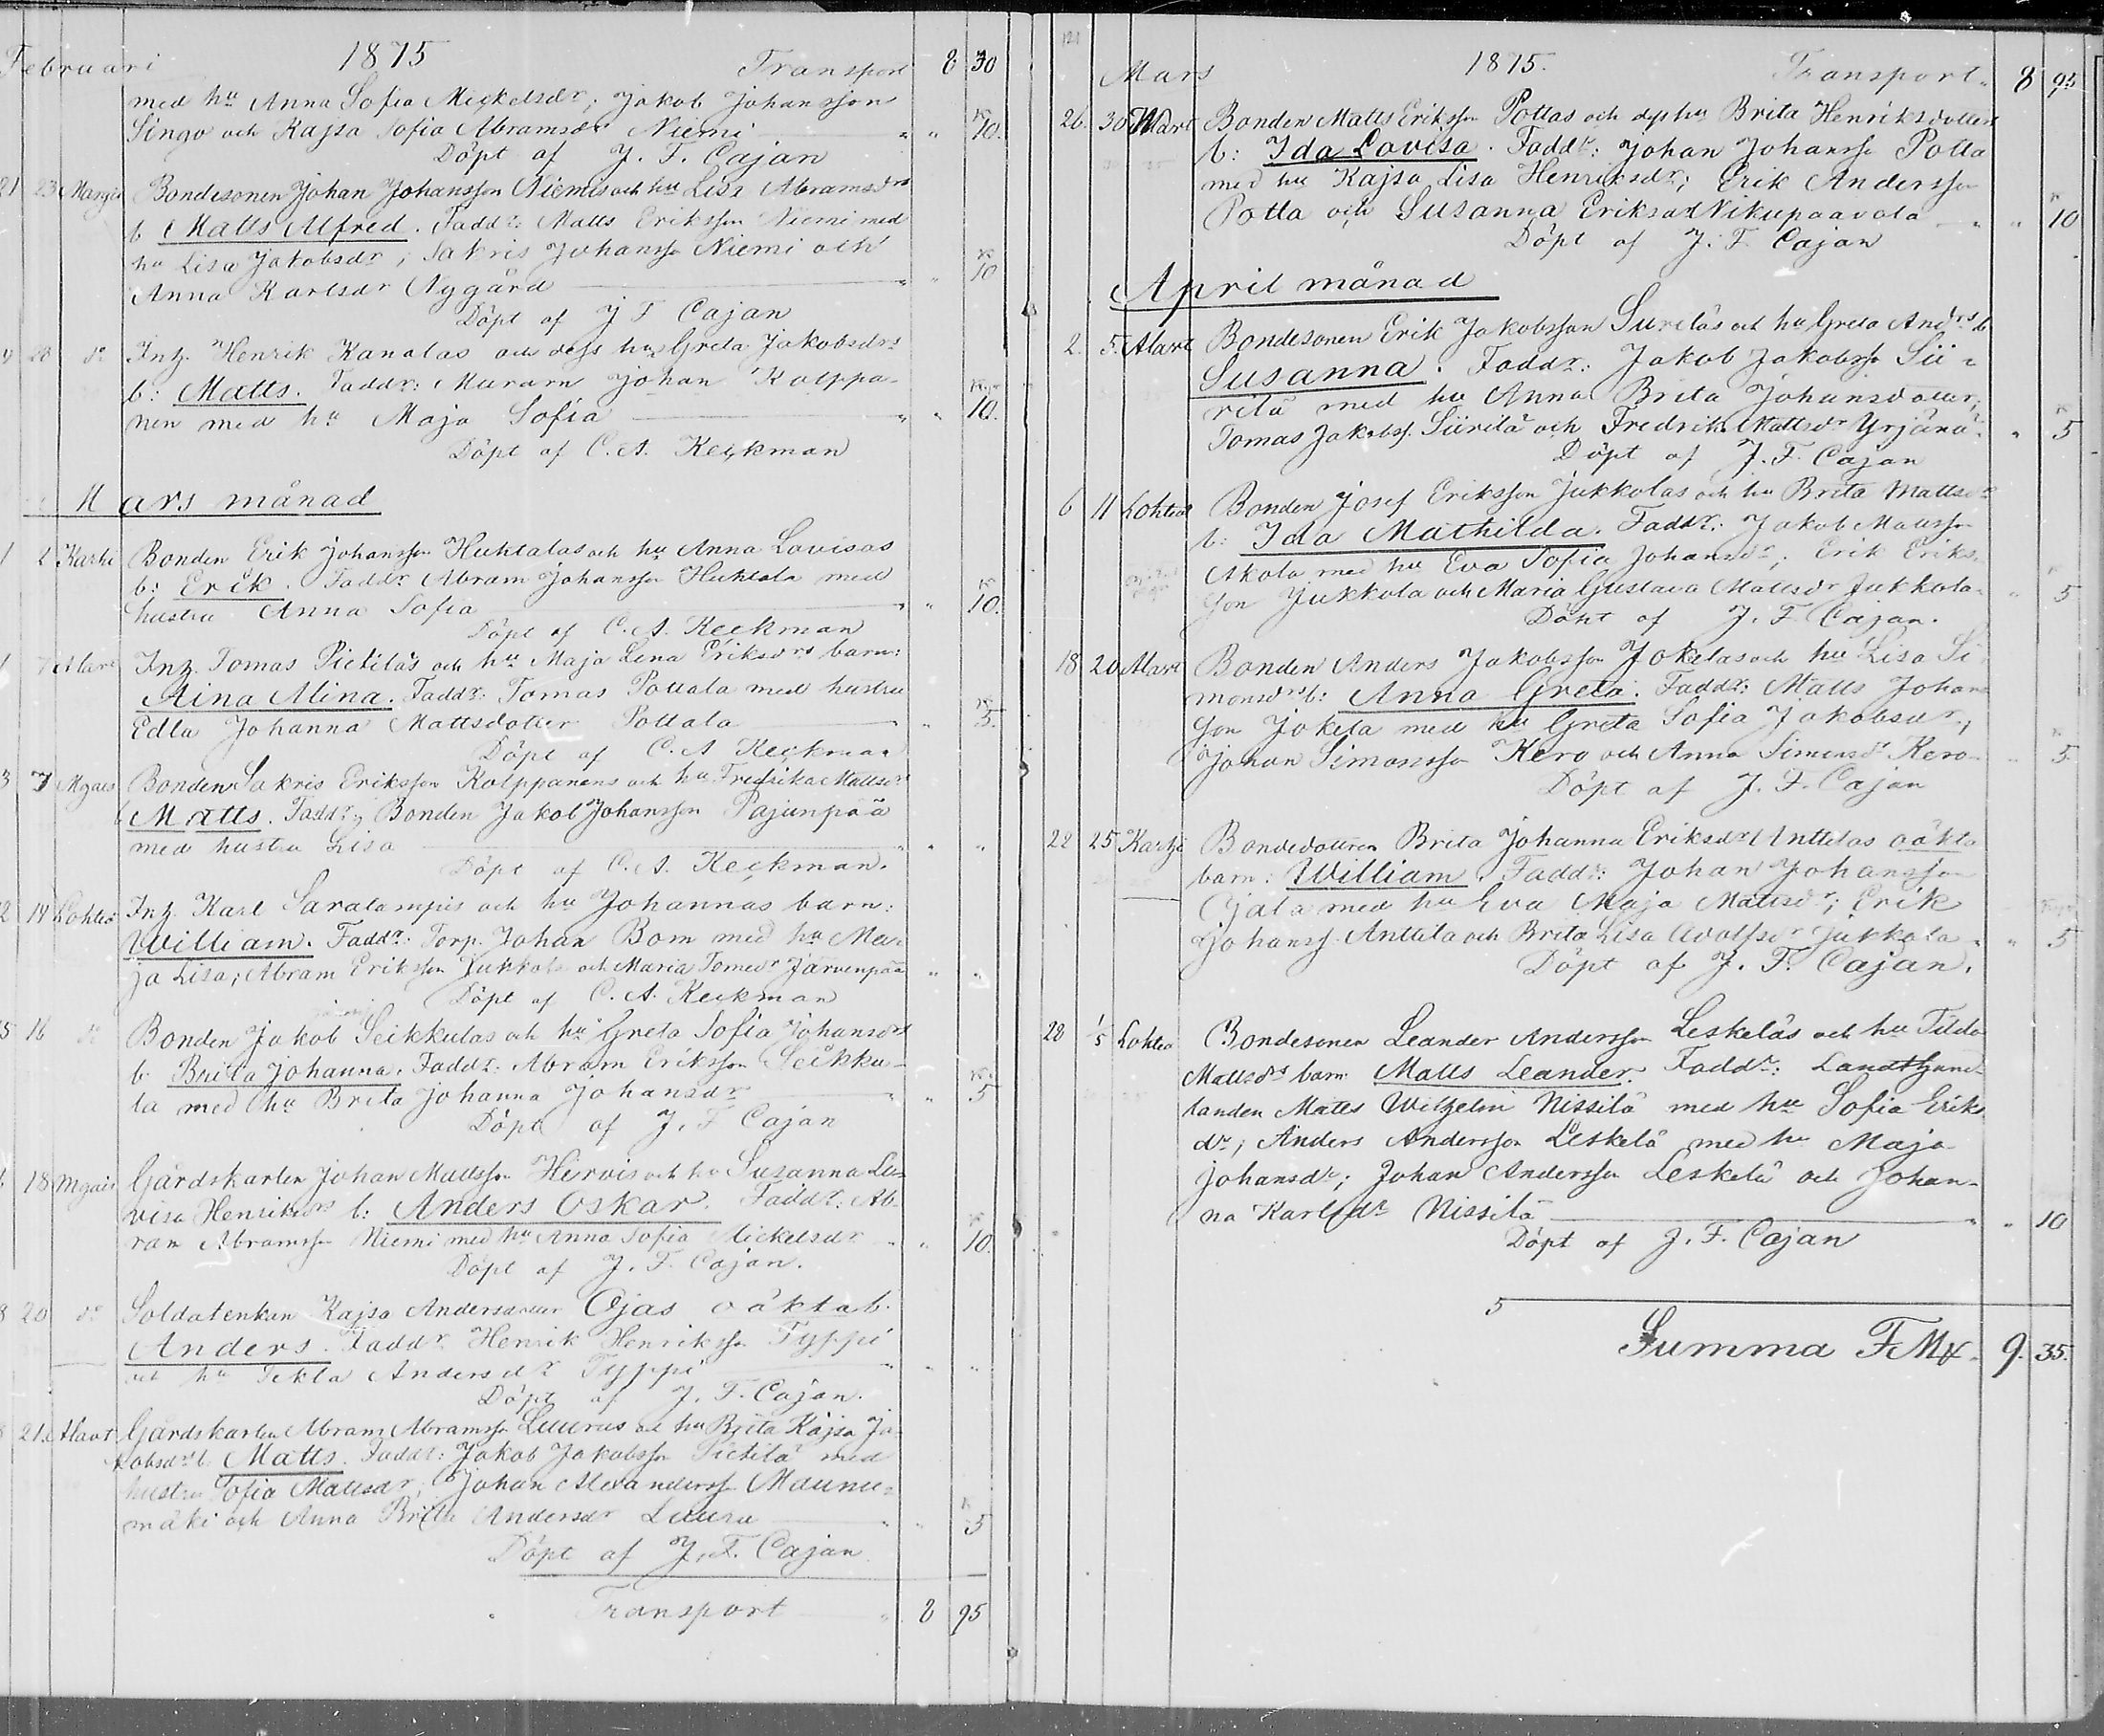 Februari 1875 Transport 8 30
med hu Anna Sofia Mickelsdr; Jakob Johansson
Singo och Kajsa Sofia Abramsdr Niemi " " 10.
Döpt af J. F. Cajan
21 23 Bondesonen Johan Johansson Niemis och hu Lisa Abramsdrs
b Matts Alfred. Faddr: Matts Eriksson Niemi med
hu Lisa Jakobsdr; Sakris Johansson Niemi och
Anna Karlsdr Nygård " " 10
Döpt af J F Cajan
28 do Inh. Henrik Kanalas och dess hu Greta Jakobsdrs
b: Matts. Faddr: Muraren Johan Kolppa-
nen med hu Maja Sofia " " 10.
Döpt af C. A. Keckman
Mars månad
1 2 Karhi Bonden Erik Johansson Huhtalas och hu Anna Lovisas
b: Erik. Faddr Abram Johansson Huhtala med
hustru Anna Sofia " " 10.
Döpt af C. A. Keckman
7 Alavt Inh. Tomas Pietiläs och hu Maja Lena Eriksdrs barn:
Aina Alina. Faddr: Tomas Pottala med hustru
Edla Johanna Mattsdotter Pottala " 5.
Döpt af C. A Keckman
3 7 Mgais Bonden Sakris Eriksson Kolppanens och hu Fredrika Mattsdrs
b Matts. Faddr; Bonden Jakob Johansson Pajunpää
med hustru Lisa " " "
Döpt af C. A. Keckman.
12 14 Lohtea Inh. Karl Saralampis och hu Johannas barn:
William. Faddr: Torp. Johan Bom med hu Ma-
ja Lisa; Abram Eriksson Jukkola och Maria Tomasdr Järvenpää " "
Döpt af C. A. Keckman
15 16 do Bonden Jakob Seikkulas och hu Greta Sofia Johansdrs
b. Brita Johanna. Faddr: Abram Eriksson Seikku-
la med hu Brita Johanna Johansdr " " 5
Döpt af J. F Cajan
18 Mgais Gårdskarlen Johan Mattsson Hirvis och hu Susanna Lo-
visa Henriksdrs b: Anders Oskar. Faddr: Ab-
ram Abramsson Niemi med hu Anna Sofia Mickelsdr " " 10.
Döpt af J. F. Cajan.
8 20 do Soldatenkan Kajsa Andersdotter Ojas oäkta b.
Anders. Faddr Henrik Henriksson Typpi
och hu Tekla Andersdr Typpi " " "
Döpt af J. F. Cajan.
21. Alavt Gårdskarlen Abram Abramsson Luurus och hu Brita Kajsa Ja-
kobsdrs b. Matts. Faddr: Jakob Jakobsson Pietilä med
hustru Sofia Mattsdr; Johan Alexandersson Maunu-
mäki och Anna Brita Andersdr Luuru " " 5
Döpt af J. F. Cajan
Transport " 8 95
121
Mars 1875. Transport. 8 95
26. 30 Alavt Bonden Matts Eriksson Pottas och dess hu Brita Henriksdotters
b: Ida Lovisa. Faddr: Johan Johansson Potta
med hu Kajsa Lisa Henriksdr; Erik Andersson
Potta och Susanna Eriksdr Nikupaavola " " 10
Döpt af J. F. Cajan
April månad
2. 5. Alavt Bondesonen Erik Jakobsson Siiriläs och hu Greta Andrs b
Susanna. Faddr: Jakob Jakobsson Sii-
rilä med hu Anna Brita Johansdotter;
Tomas Jakobss. Siirilä och Fredrik. Mattsdr Yrjänä. " 5
Döpt af J. F. Cajan
6 11 Lohtea Bonden Josef Eriksson Jukkolas och hu Brita Mattsdrs
b: Ida Mathilda. Faddr: Jakob Mattsson
Akola med hu Eva Sofia Johansdr; Erik Eriks-
son Jukkola och Maria Gustava Mattsdr Jukkola. " 5
Döpt af J. F. Cajan.
18 20 Alavt Bonden Anders Jakobsson Jokelas och hu Lisa Si-
monsdrs b: Anna Greta. Faddr: Matts Johans-
son Jokela med hu Greta Sofia Jakobsdr;
Johan Simonsson Kero och Anna Simonsdr Kero " 5
Döpt af J. F. Cajan
22 25 Karhi Bondedottren Brita Johanna Eriksdr Anttilas oäkta
barn: William. Faddr: Johan Johansson
Ojala med hu Eva Maja Mattsdr; Erik
Johanss. Anttila och Brita Lisa Adolfsdr Jukkola " " 5
Döpt af J. F. Cajan.
28 1/5 Lohtea Bondesonen Leander Andersson Leskeläs och hu Tilda
Mattsdrs barn: Matts Leander. Faddr: Landthand-
landen Matts Wilhelm Nissilä med hu Sofia Eriks
dr; Anders Andersson Leskelä med hu Maja
Johansdr; Johan Andersson Leskelä och Johan-
na Karlsdr Nissilä " " 10
Döpt af J. F. Cajan
5
Summa FMk. 9. 35.